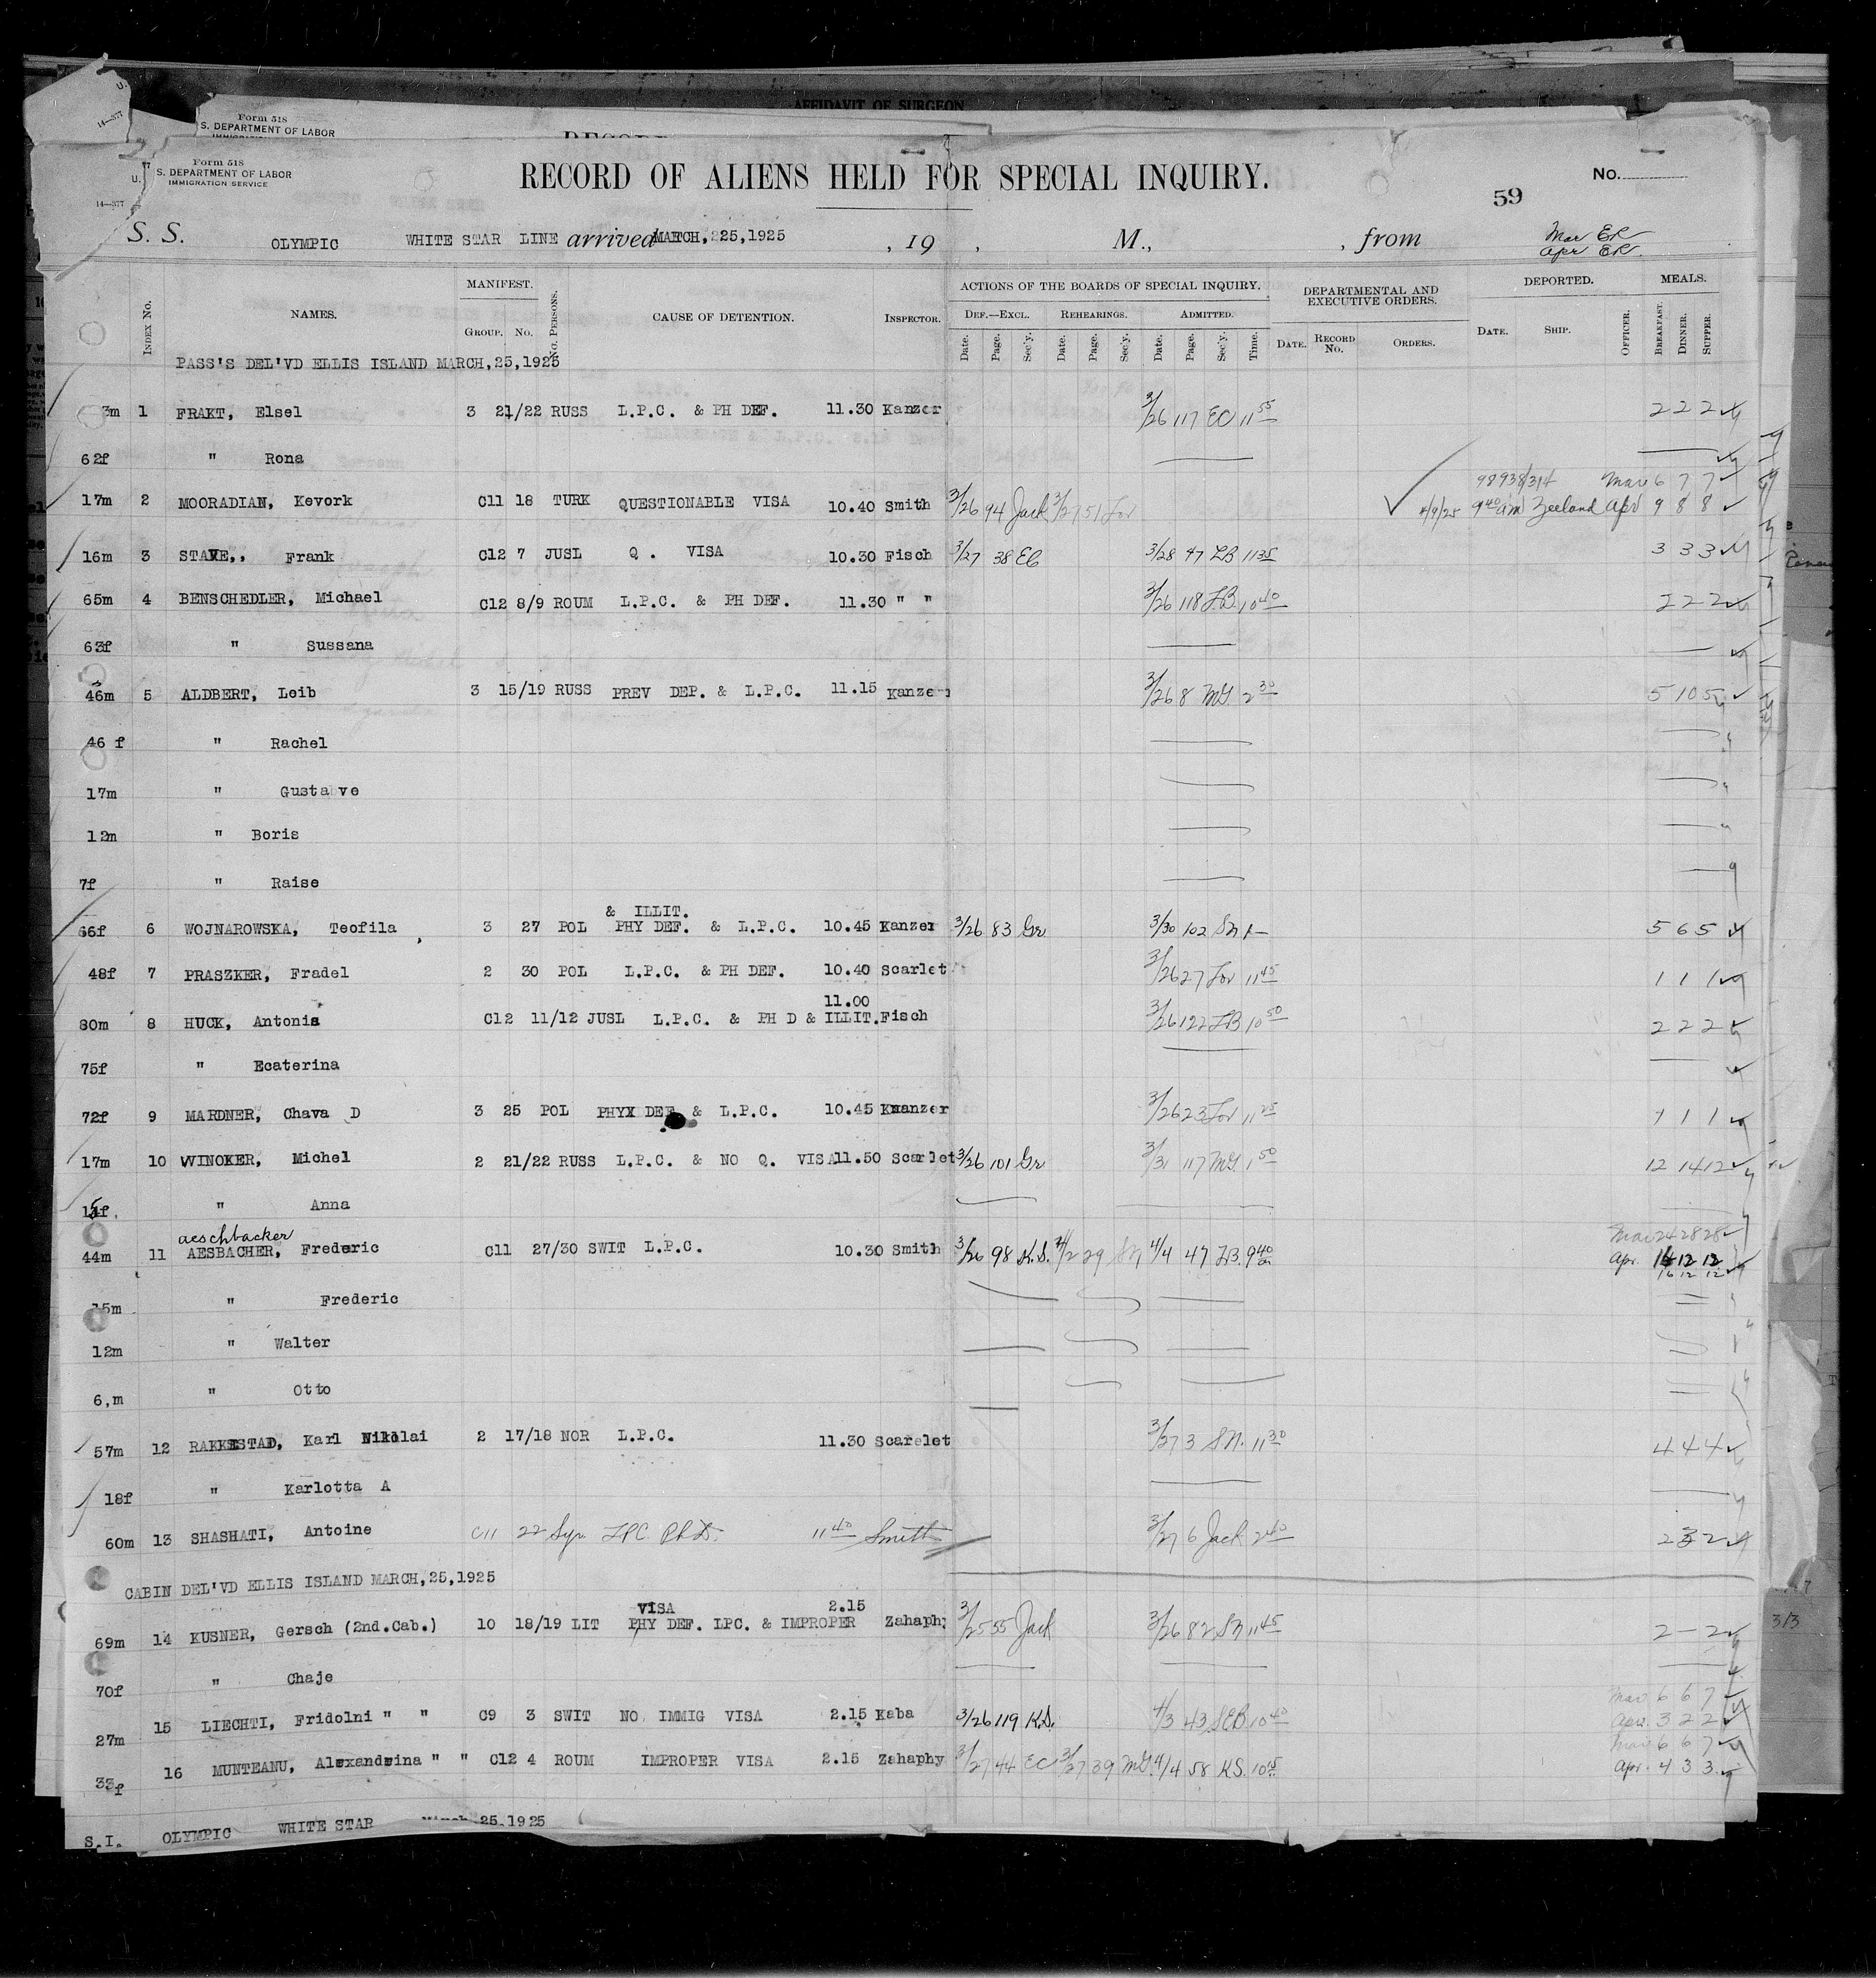 AFFIDAVIT OF SURGEON
Form 518
S. DEPARTMENT OF LABOR
14—377
Form 518
U. S. DEPARTMENT OF LABOR
IMMIGRATION SERVICE
14—377
RECORD OF ALIENS HELD FOR SPECIAL INQUIRY.
No.
59
S. S. OLYMPIC WHITE STAR LINE arrived MARCH, 25,1925 , 19 , M., , from Mar ER
Apr ER
MANIFEST. ACTIONS OF THE BOARDS OF SPECIAL INQUIRY. DEPARTMENTAL AND EXECUTIVE ORDERS. DEPORTED. MEALS.
Index No. NAMES. Group. No. No. Persons. CAUSE OF DETENTION. Inspector. Def.—Excl. Rehearings. Admitted. Date. Record No. Orders. Date. Ship. Officer. Breakfast. Dinner. Supper.
Date. Page. Sec'y. Date. Page. Sec'y. Date. Page. Sec'y. Time.
PASS'S DEL'VD ELLIS ISLAND MARCH,25,1925
3m 1 FRAKT, Elsel 3 21/22 RUSS L.P.C. & PH DEF. 11.30 Kanzer 3/26 117 EC 11 55 2 2 2
62f " Rona
17m 2 MOORADIAN, Kevork C11 18 TURK QUESTIONABLE VISA 10.40 Smith 3/26 94 Jack 3/27 51 Lov 98938/314 Mar 6 7 7
4/9/25 9 40 am Zeeland Apr 9 8 8
16m 3 STAVE,, Frank C12 7 JUSL Q . VISA 10.30 Fisch 3/27 38 EC 3/28 47 LB 11 35 3 3 3
65m 4 BENSCHEDLER, Michael C12 8/9 ROUM L.P.C. & PH DEF. 11.30 " " 3/26 118 LB 10 40 2 2 2
63f " Sussana
46m 5 ALDBERT, Leib 3 15/19 RUSS PREV DEP. & L.P.C. 11.15 Kanzer 3/26 8 MG 2 30 5 10 5
46 f " Rachel
17m " Gustave
12m " Boris
7f " Raise
& ILLIT.
66f 6 WOJNAROWSKA, Teofila 3 27 POL PHY DEF. & L.P.C. 10.45 Kanzer 3/26 83 Gr 3/30 102 Sn 1— 5 6 5
48f 7 PRASZKER, Fradel 2 30 POL L.P.C. & PH DEF. 10.40 Scarlet 3/26 27 Lov 11 45 1 1 1
11.00
80m 8 HUCK, Antonis C12 11/12 JUSL L.P.C. & PH D & ILLIT. Fisch 3/26 122 LB 10 50 2 2 2
75f " Ecaterina
72f 9 MARDNER, Chava D 3 25 POL PHYX DEF & L.P.C. 10.45 Knanzer 3/26 23 Lov 11 25 1 1 1
17m 10 WINOKER, Michel 2 21/22 RUSS L.P.C. & NO Q. VISA 11.50 Scarlet 3/26 101 Gr 3/31 117 MG 1 50 12 14 12
" Anna
aeschbacker Mar 24 28 28
44m 11 AESBACHER, Frederic C11 27/30 SWIT L.P.C. 10.30 Smith 3/26 98 K.S. 4/2 29 SN 4/4 47 LB. 9 40 Apr. 16 12 12
16 12 12
15m " Frederic
12m " Walter
6,m " Otto
57m 12 RAKKESTAD, Karl Nikolai 2 17/18 NOR L.P.C. 11.30 Scarelet 3/27 3 SN. 11 30 4 4 4
18f " Karlotta A
60m 13 SHASHATI, Antoine C11 22 Syr. LPC Ph D. 11 40 Smith 3/27 6 Jack 2 40 2 3 2
CABIN DEL'VD ELLIS ISLAND MARCH,25,1925
VISA 2.15
69m 14 KUSNER, Gersch (2nd.Cab.) 10 18/19 LIT PHY DEF. LPC. & IMPROPER Zahaphy 3/25 55 Jack 3/26 82 Sn 11 45 2 — 2
70f " Chaje
Mar 6 6 7
27m 15 LIECHTI, Fridolni " " C9 3 SWIT NO IMMIG VISA 2.15 Kaba 3/26 119 K.S. 4/3 43 SEB 10 40 Apr. 3 2 2
Mar 6 6 7
33f 16 MUNTEANU, Alexandrina " " C12 4 ROUM IMPROPER VISA 2.15 Zahaphy 3/27 44 EC 3/27 39 MG 4/4 58 KS. 10 15 Apr. 4 3 3
S.I. OLYMPIC WHITE STAR March 25,1925
313